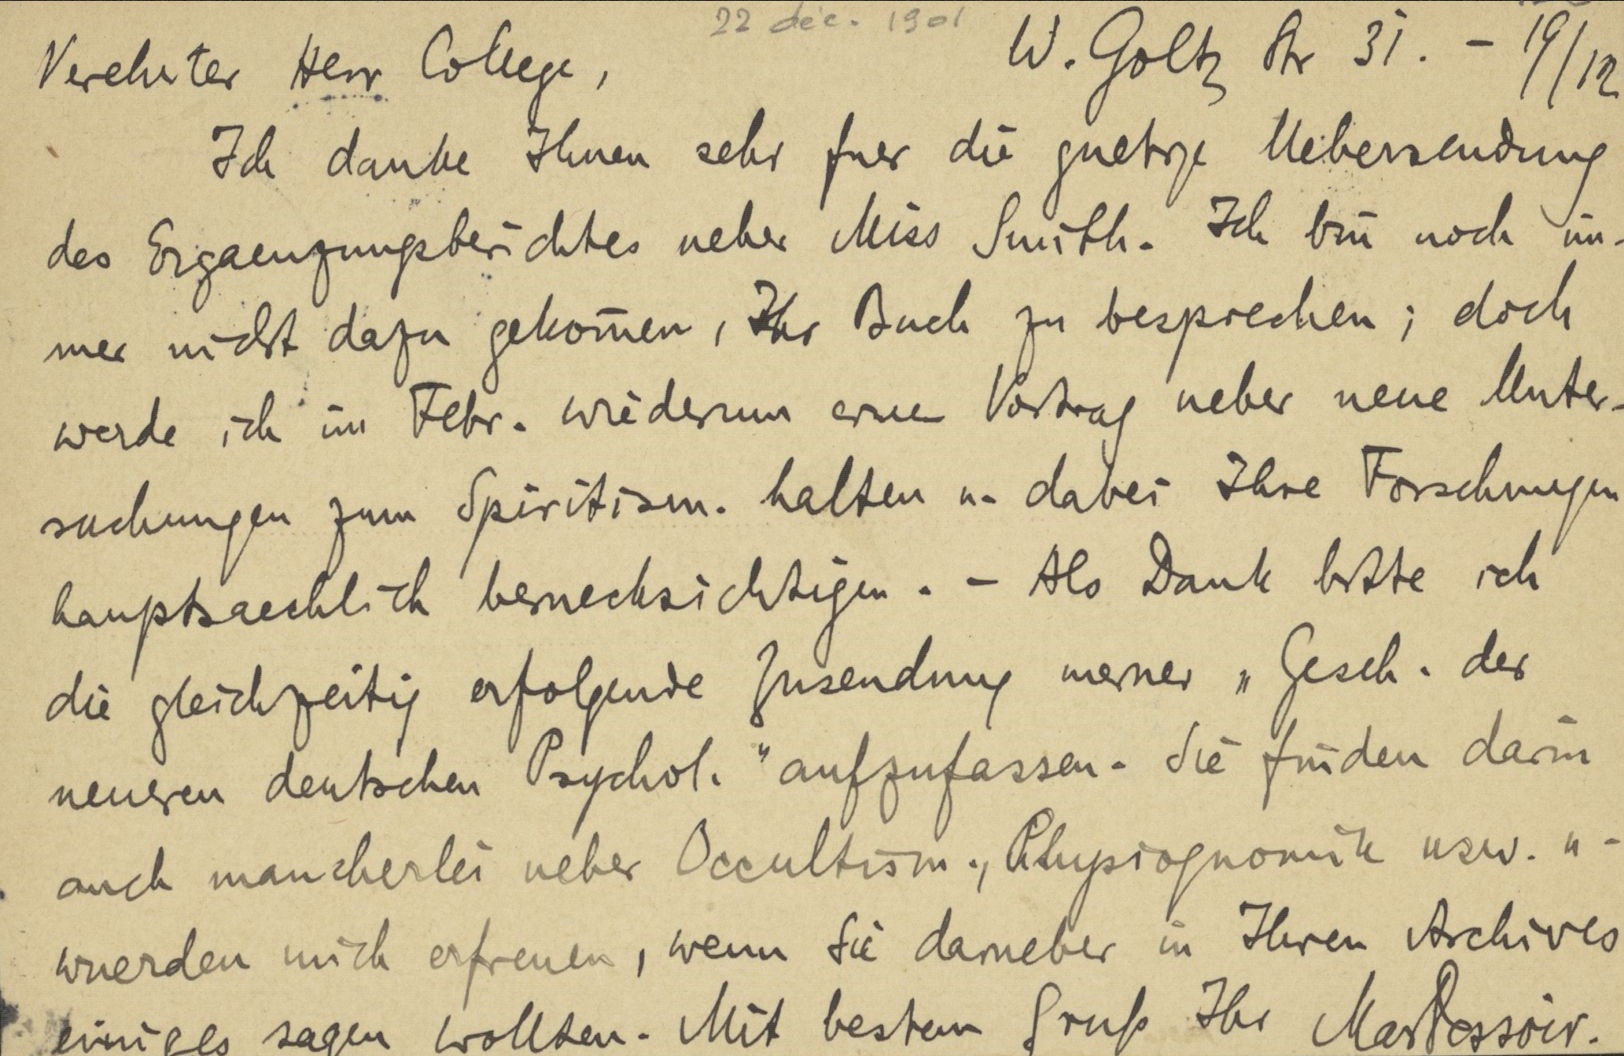 22 déc. 1901
Verehrter Herr College, W. Goltz Str 31. – 19/12
Ich danke Ihnen sehr fuer die guetige Uebersendung
des Ergaenzungsberichtes ueber Miss Smith. Ich bin noch im-
mer nicht dazu gekom̄en, Ihr Buch zu besprechen; doch
werde ich im Febr. wiederum einen Vortrag ueber neue Unter-
suchungen zum Spiritism. halten u. dabei Ihre Forschungen
hauptsaechlich beruecksichtigen. – Als Dank bitte ich
die gleichzeitig erfolgende Zusendung meiner „Gesch. der
neueren deutschen Psychol.“ aufzufassen. Sie finden darin
auch mancherlei ueber Occultism., Physiognomik usw. u.
wuerden mich erfreuen, wenn Sie darueber in Ihren Archives
einiges sagen wollten. Mit bestem Gruß Ihr Max Dessoir.